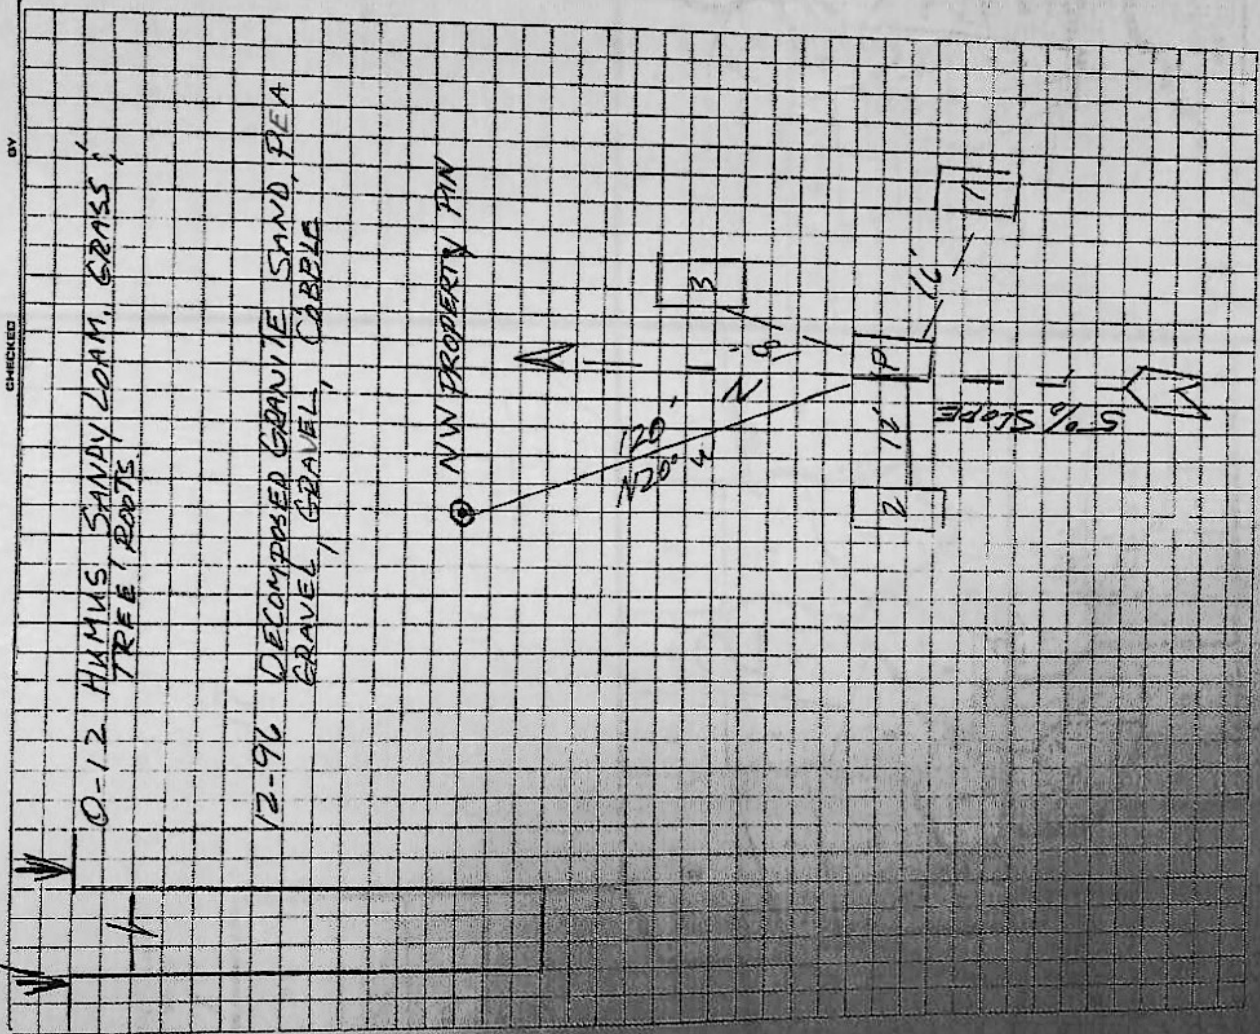 CHECKED BY
0-12 HUMUS, SANDY LOAM, GRASS,
TREE ROOTS
12-96 DECOMPOSED GRANITE SAND, PEA
GRAVEL, GRAVEL, COBBLE
NW PROPERTY PIN
120'
N20°
N
3
P
16'
1
12'
2
5% SLOPE